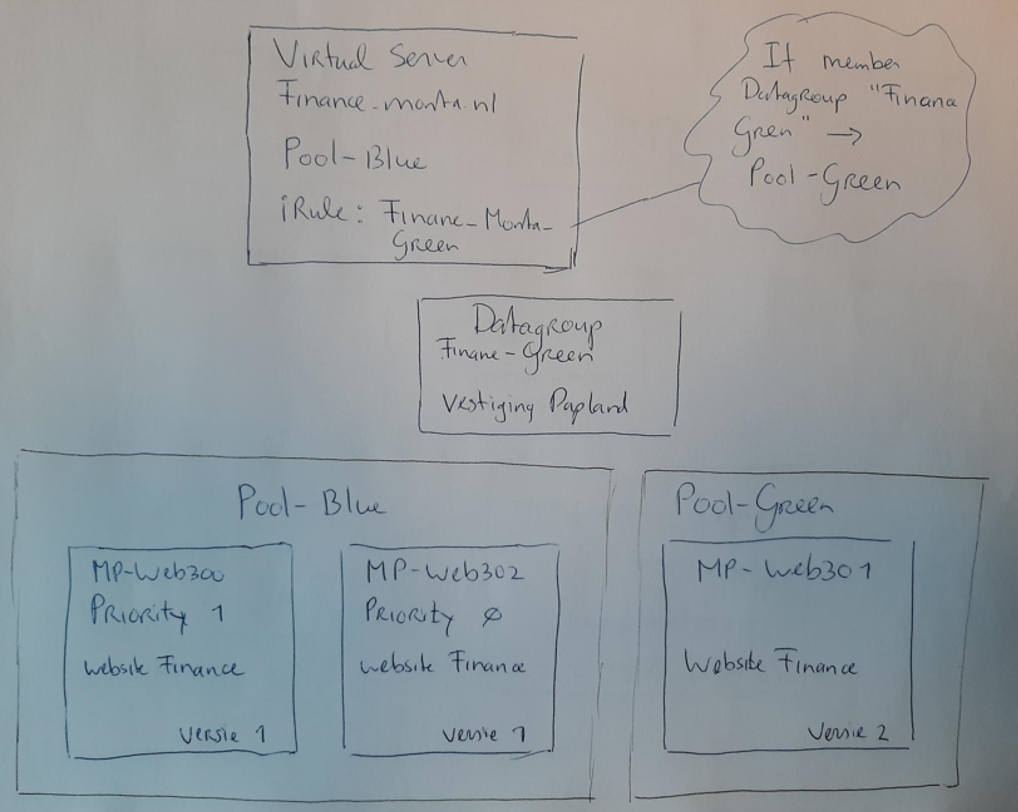 Virtual Server
Finance.monta.nl
Pool-Blue
iRule: Finane_Monta_
Green
If member
Datagroup "Finana
Gren" →
Pool-Green
Datagroup
Finane-Green
Vestiging Papland
Pool-Blue
MP-Web300
Priority 1
website Finance
versie 1
MP-Web302
Priority ø
website Finance
versie 1
Pool-Green
MP-Web301
Website Finance
Versie 2